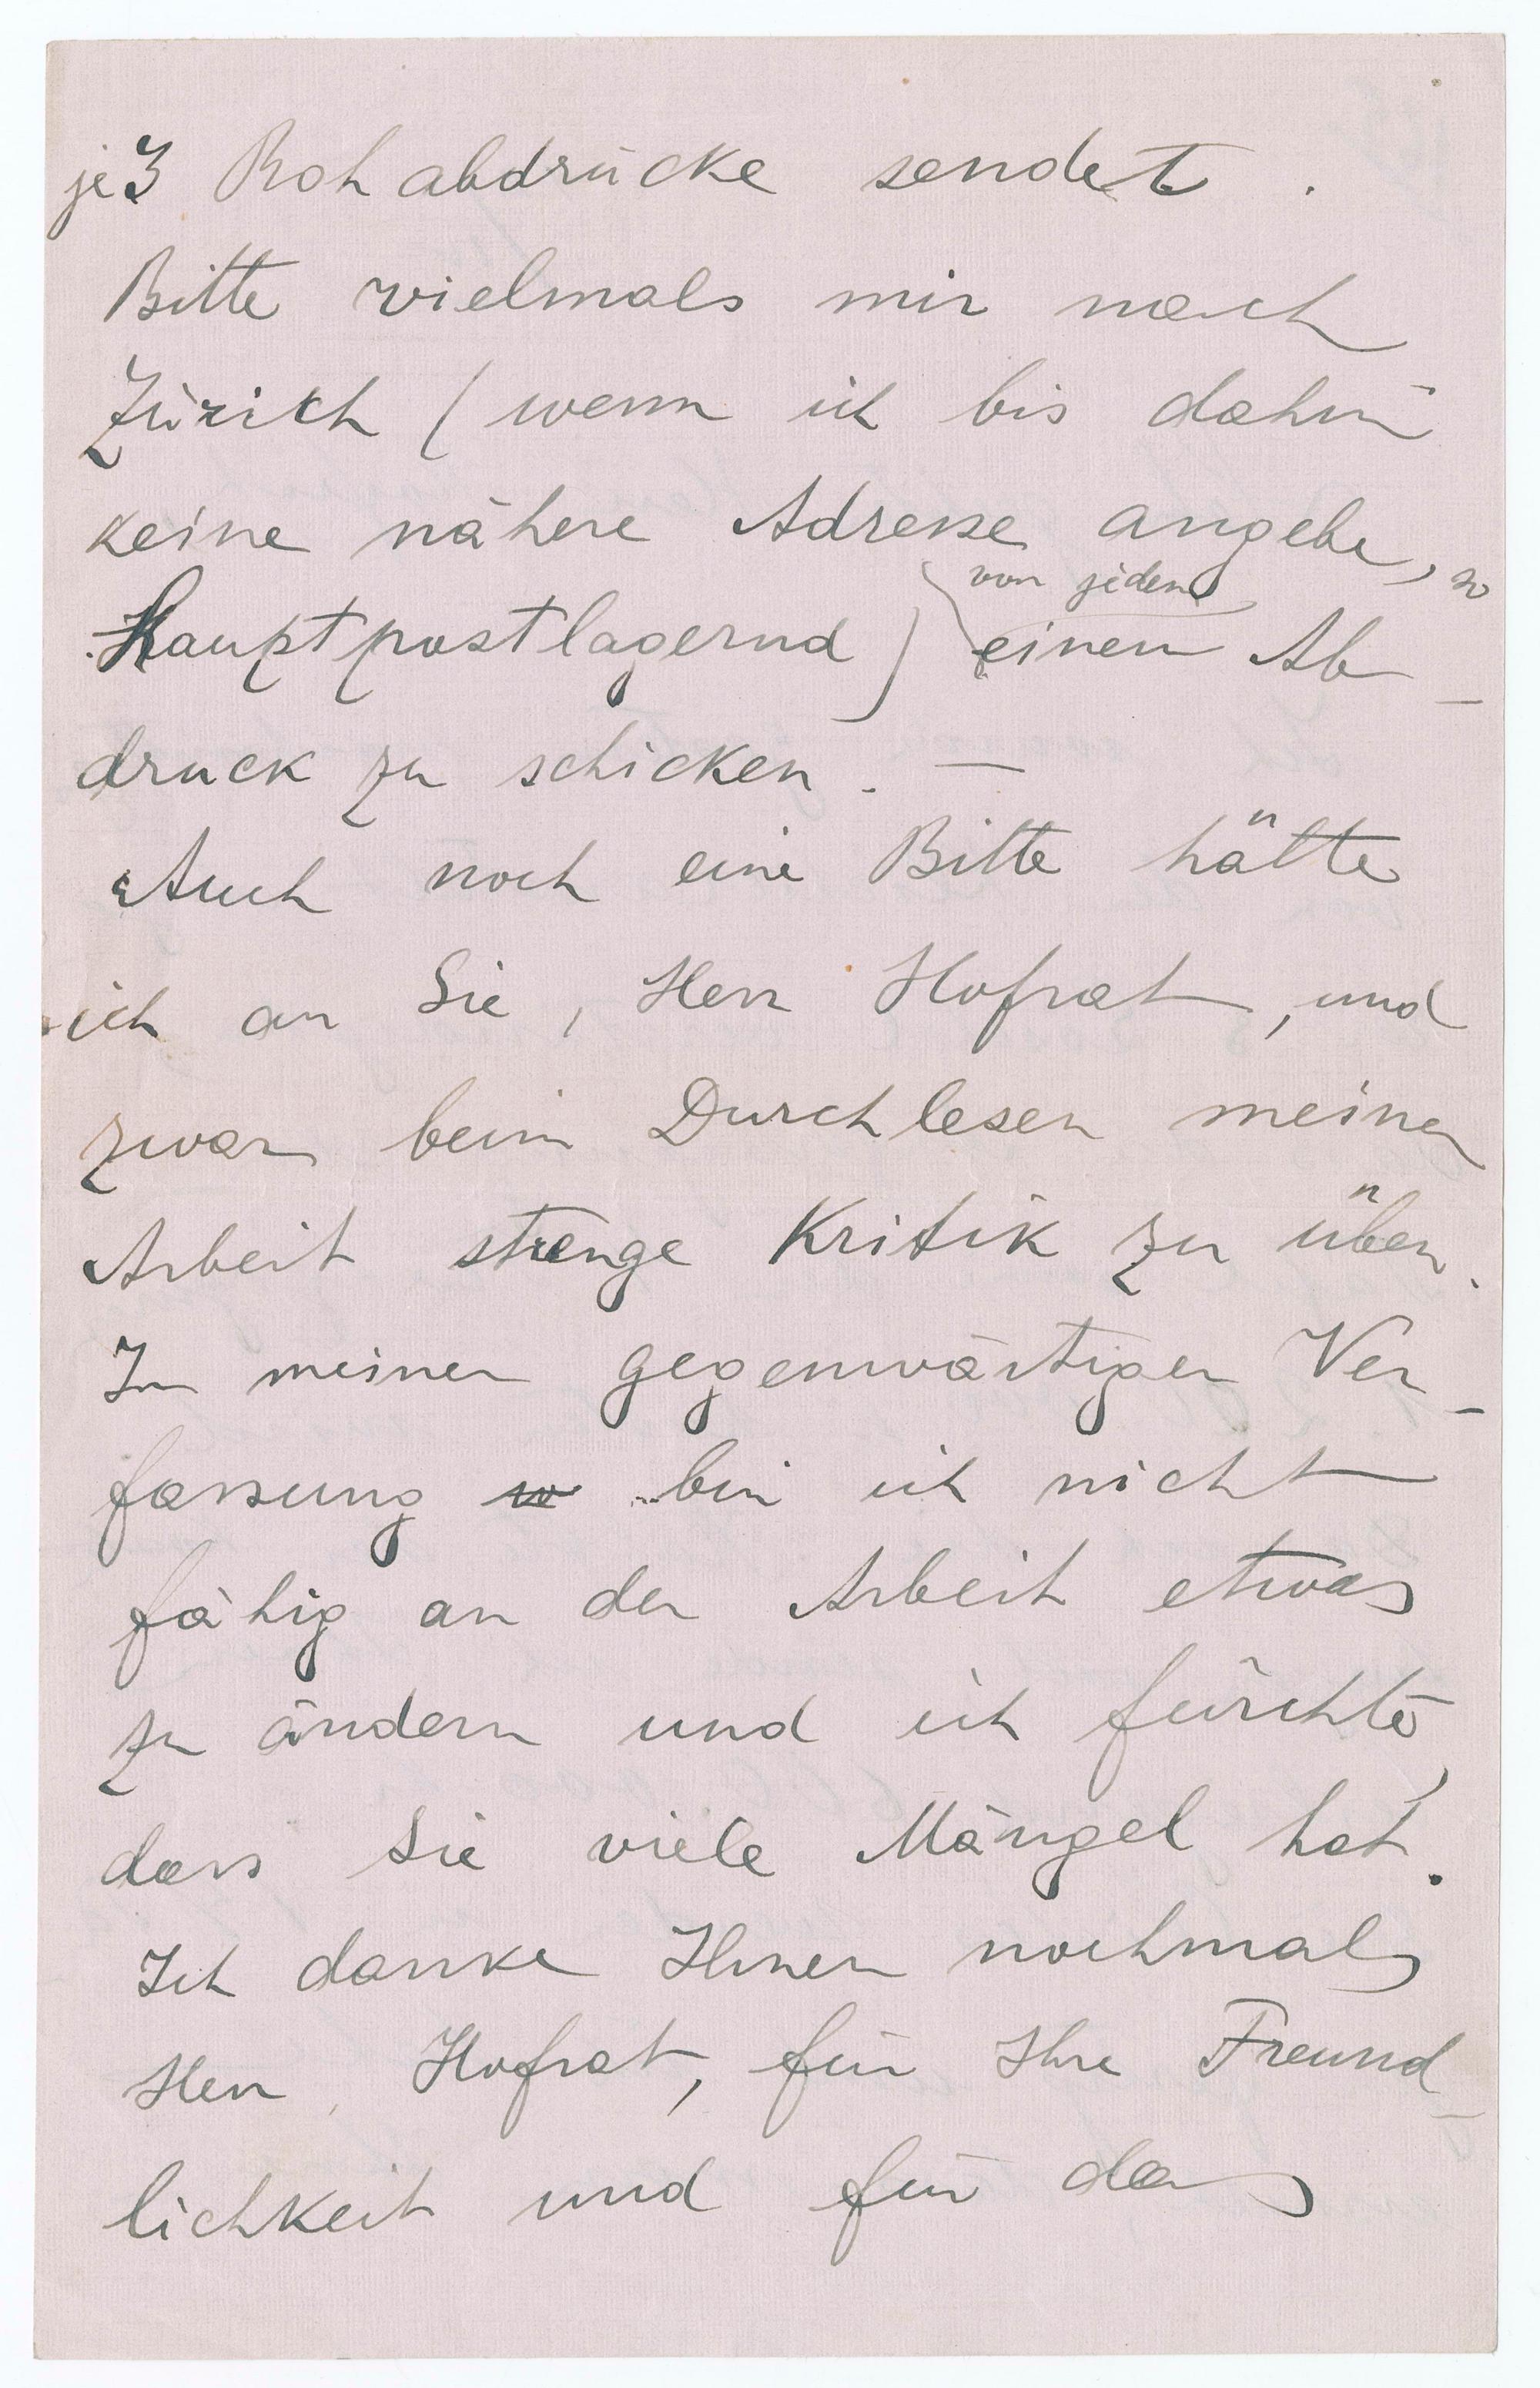 je 3 Rohabdrücke sendet.
Bitte vielmals mir nach
Zürich (wenn ich bis dahin
keine nähere Adresse angebe, so
von jedem
Hauptpostlagernd) einen Ab-
druck zu schicken. —
Auch noch eine Bitte hätte
ich an Sie, Herr Hofrat, und
zwar beim Durchlesen meiner
Arbeit strenge Kritik zu üben.
In meiner gegenwärtigen Ver-
fassung bin ich nicht
fähig an der Arbeit etwas
zu ändern und ich fürchte,
dass Sie viele Mängel hat.
Ich danke Ihnen nochmals
Herr Hofrat, für Ihre Freund-
lichkeit und für das